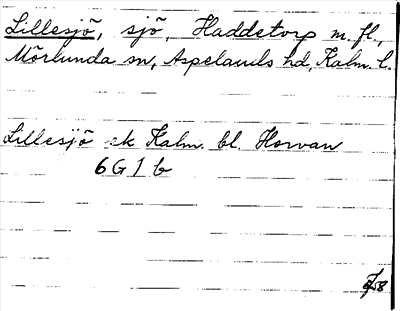 Lillesjö, sjö, Haddetorp m. fl.,
Mörlunda sn, Aspelands hd, Kalm. l.
Lillesjö ek Kalm. bl. Horvan
6G1b